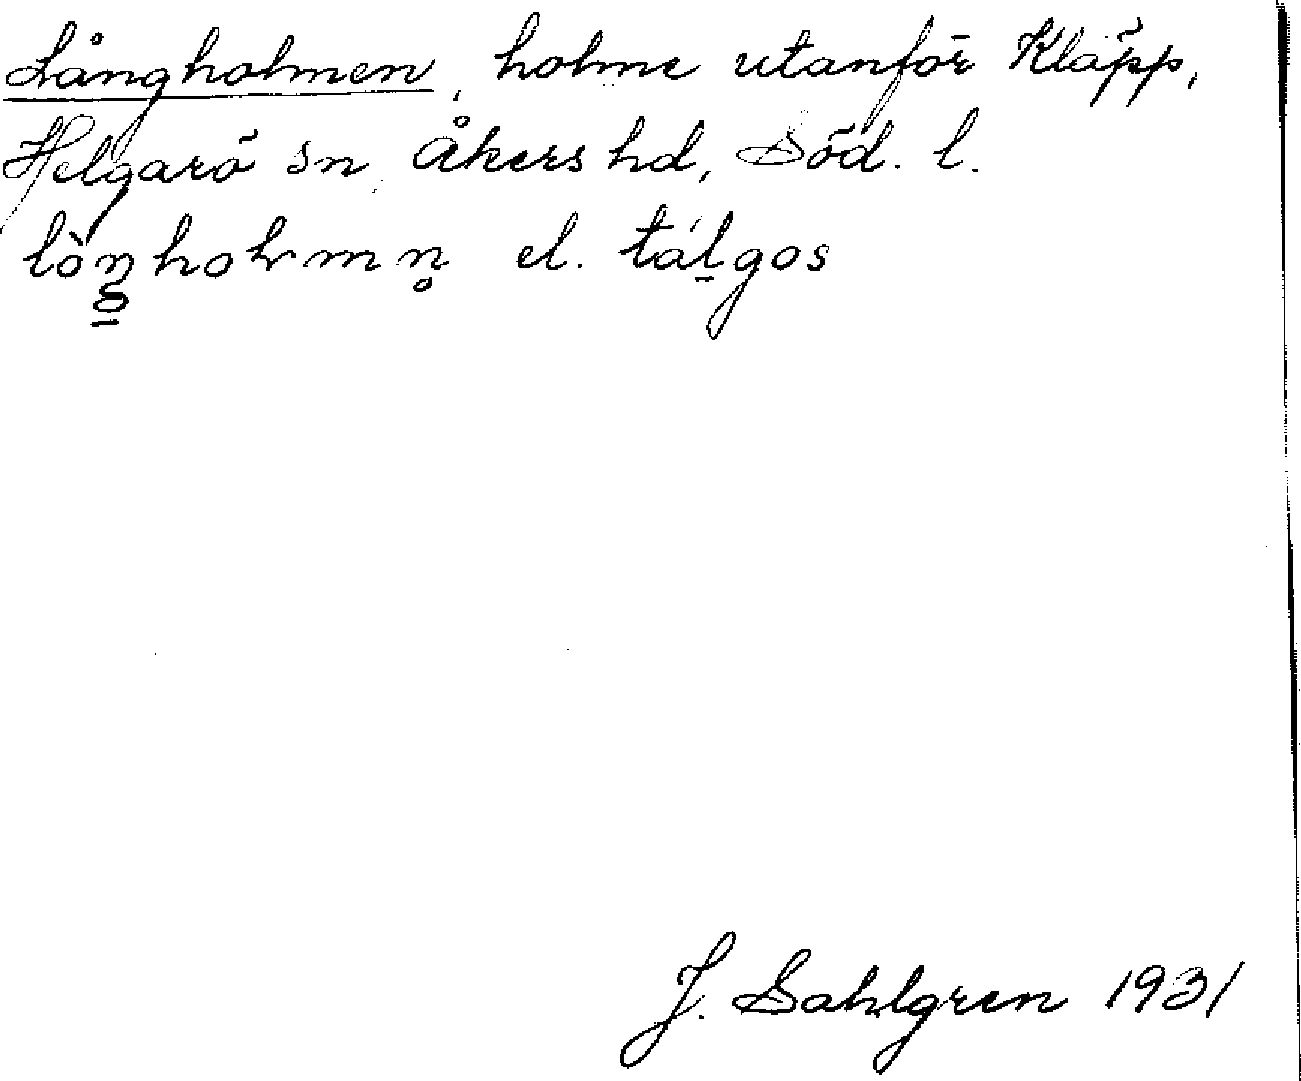 Långholmen, holme utanför Kläpp,
Helgarö sn, Åkers hd, Söd. l.
lòŋholmn̥ el. tálgos
J. Sahlgren 1931